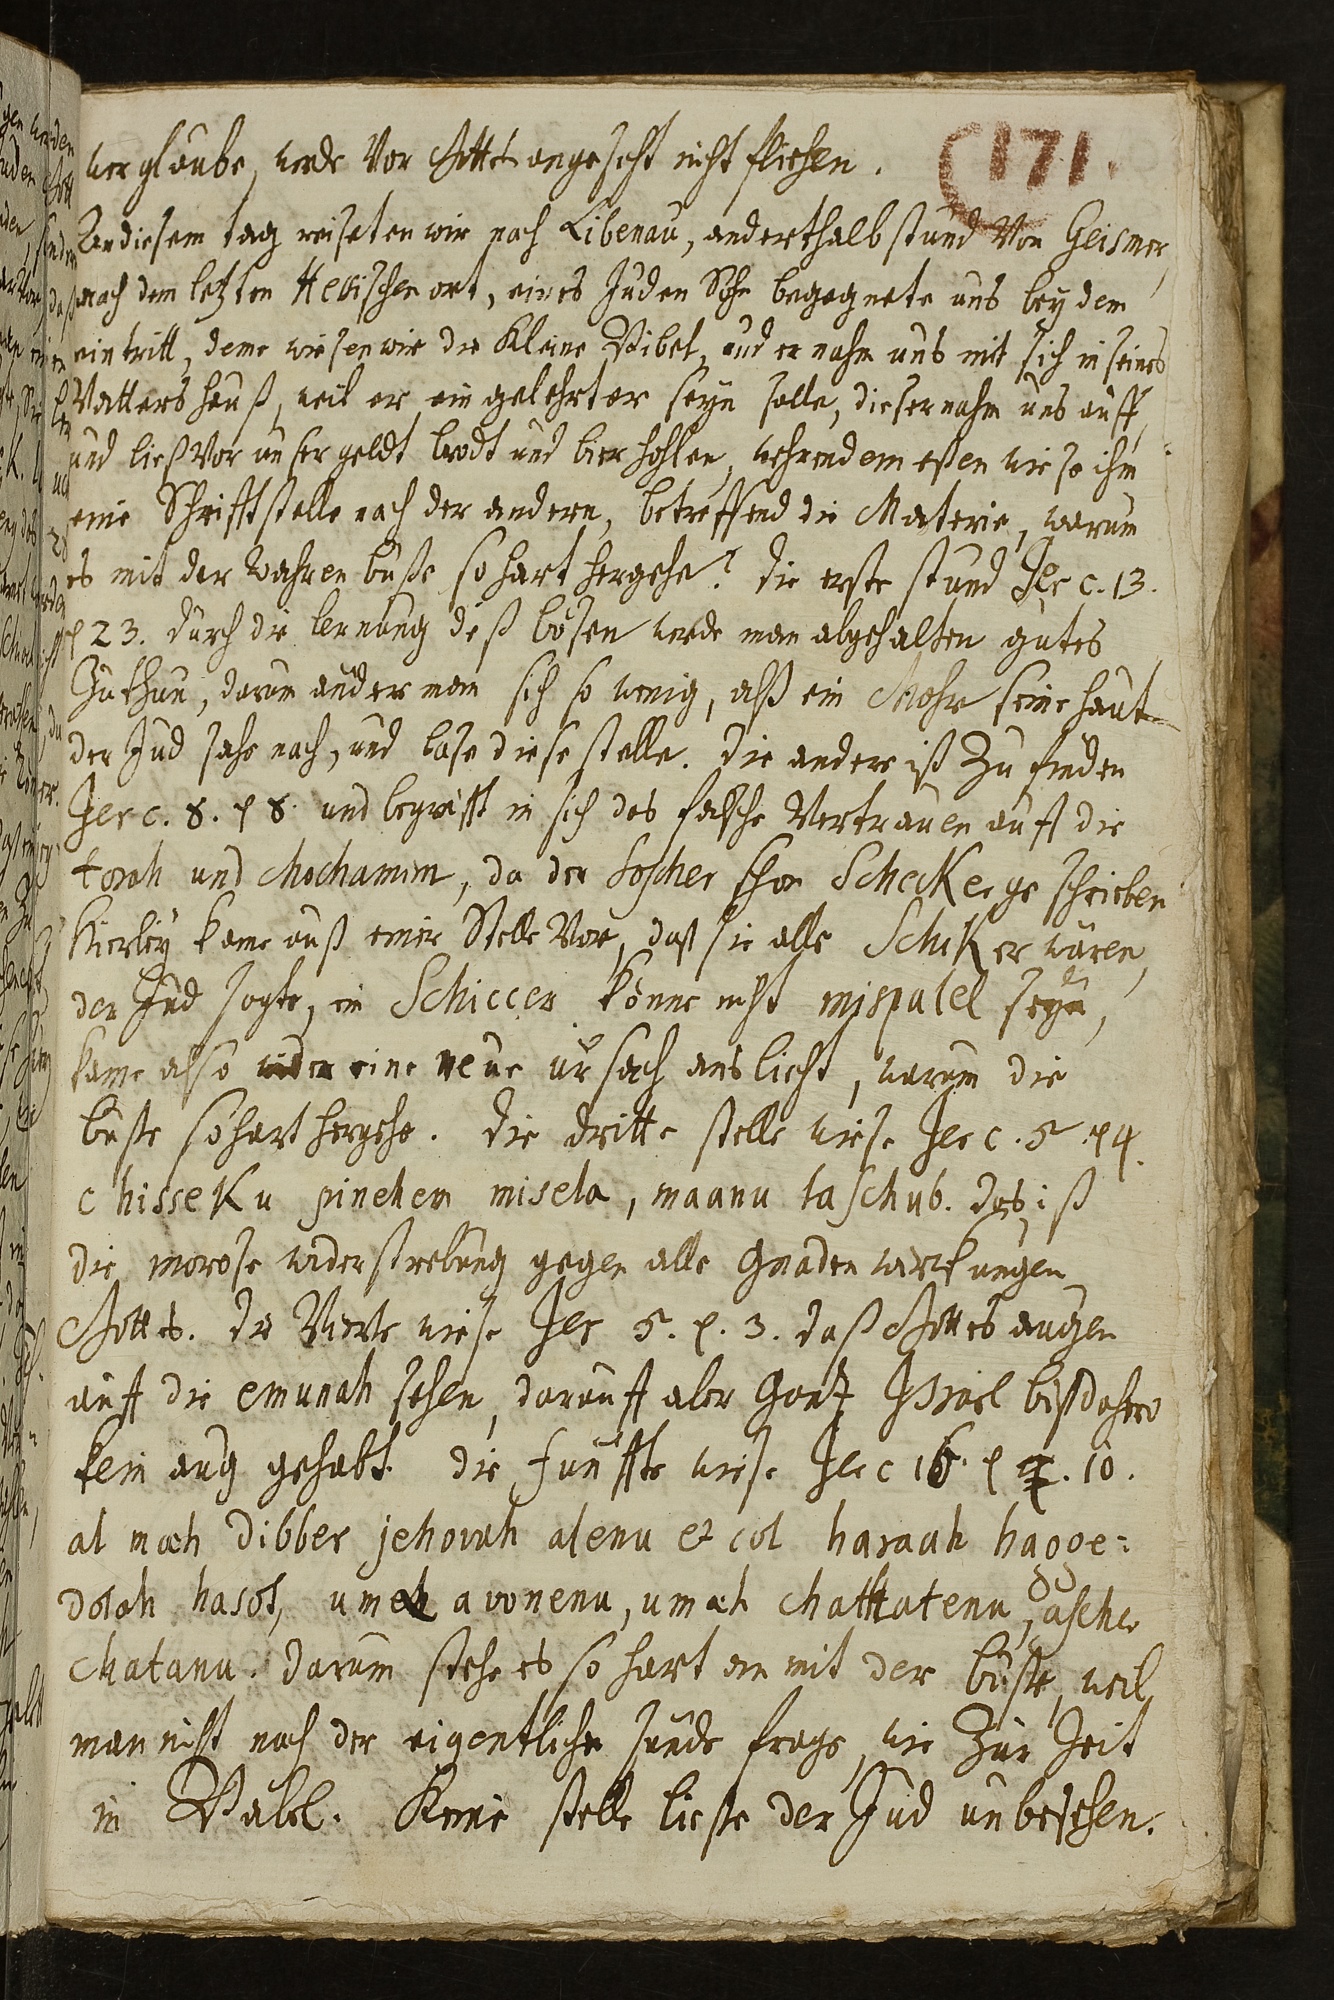 (171.
wer glaube, werde Vor Gottes angesicht nicht fliehen.
An diesem tag reiseten wir nach Libenau, anderthalb stund Von Geismer,
nach dem letzten Hessischen ort, eines Juden Sohn begegnete uns bey dem
eintritt, deme wiesen wir die Kleine Bibel, und er nahm uns mit sich in seines
Vatters hauß, weil er ein gelehrter seyn solle, dieser nahm uns auff,
und ließ Vor unser geldt brodt und bier hohlen, wehrendem eßen wiese ihm
eine Schrifftstelle nach der andern, betreffend die Materie, warum
es mit der wahren buße so hart hergehe? die erste stund Jer c. 13.
℣ 23. durch die lernung deß bösen werde man abgehalten gutes
zu thun, darum änder man sich so wenig, alß ein Mohr seine haut
der Jud sahe nach, und lase diese stelle. die andere ist Zu finden
Jer c. 8. ℣ 8. und begreifft in sich das falsche Vertrauen auff die
torah und chochamim, da der Sopher schon Scheker geschrieben
hierbey kame auß einer Stelle Vor, daß sie alle Schiker wären,
der Jud sagte, ein Schiccer könne nicht mispalel seyn,
kame also eine neue ursach ans licht, warum die
buße so hart hergehe. die dritte stelle wiese Jer c. 5. ℣ 4.
chisseku pinehem misela, maanu laschub. das ist
die morose widerstrebung gegen alle Gnaden wirkungen
Gottes. die Vierte wiese Jer 5. ℣. 3. daß Gottes augen
auff die emunah sehen, darauff aber Gantz Israel bißdahero
kein aug gehabt. die fünffte wiese Jer c 16. ℣ . 10.
al mah dibber jehovah alenu et col haraah hagge:
dolah hasot, umeh avonenu, umah chattatenu, ascher
chatanu. darum stehe es so hart an mit der buße, weil
man nicht nach der eigentlichen sünde frage, wie Zur Zeit
in Babel. Keine stelle ließe der Jud unbesehen.